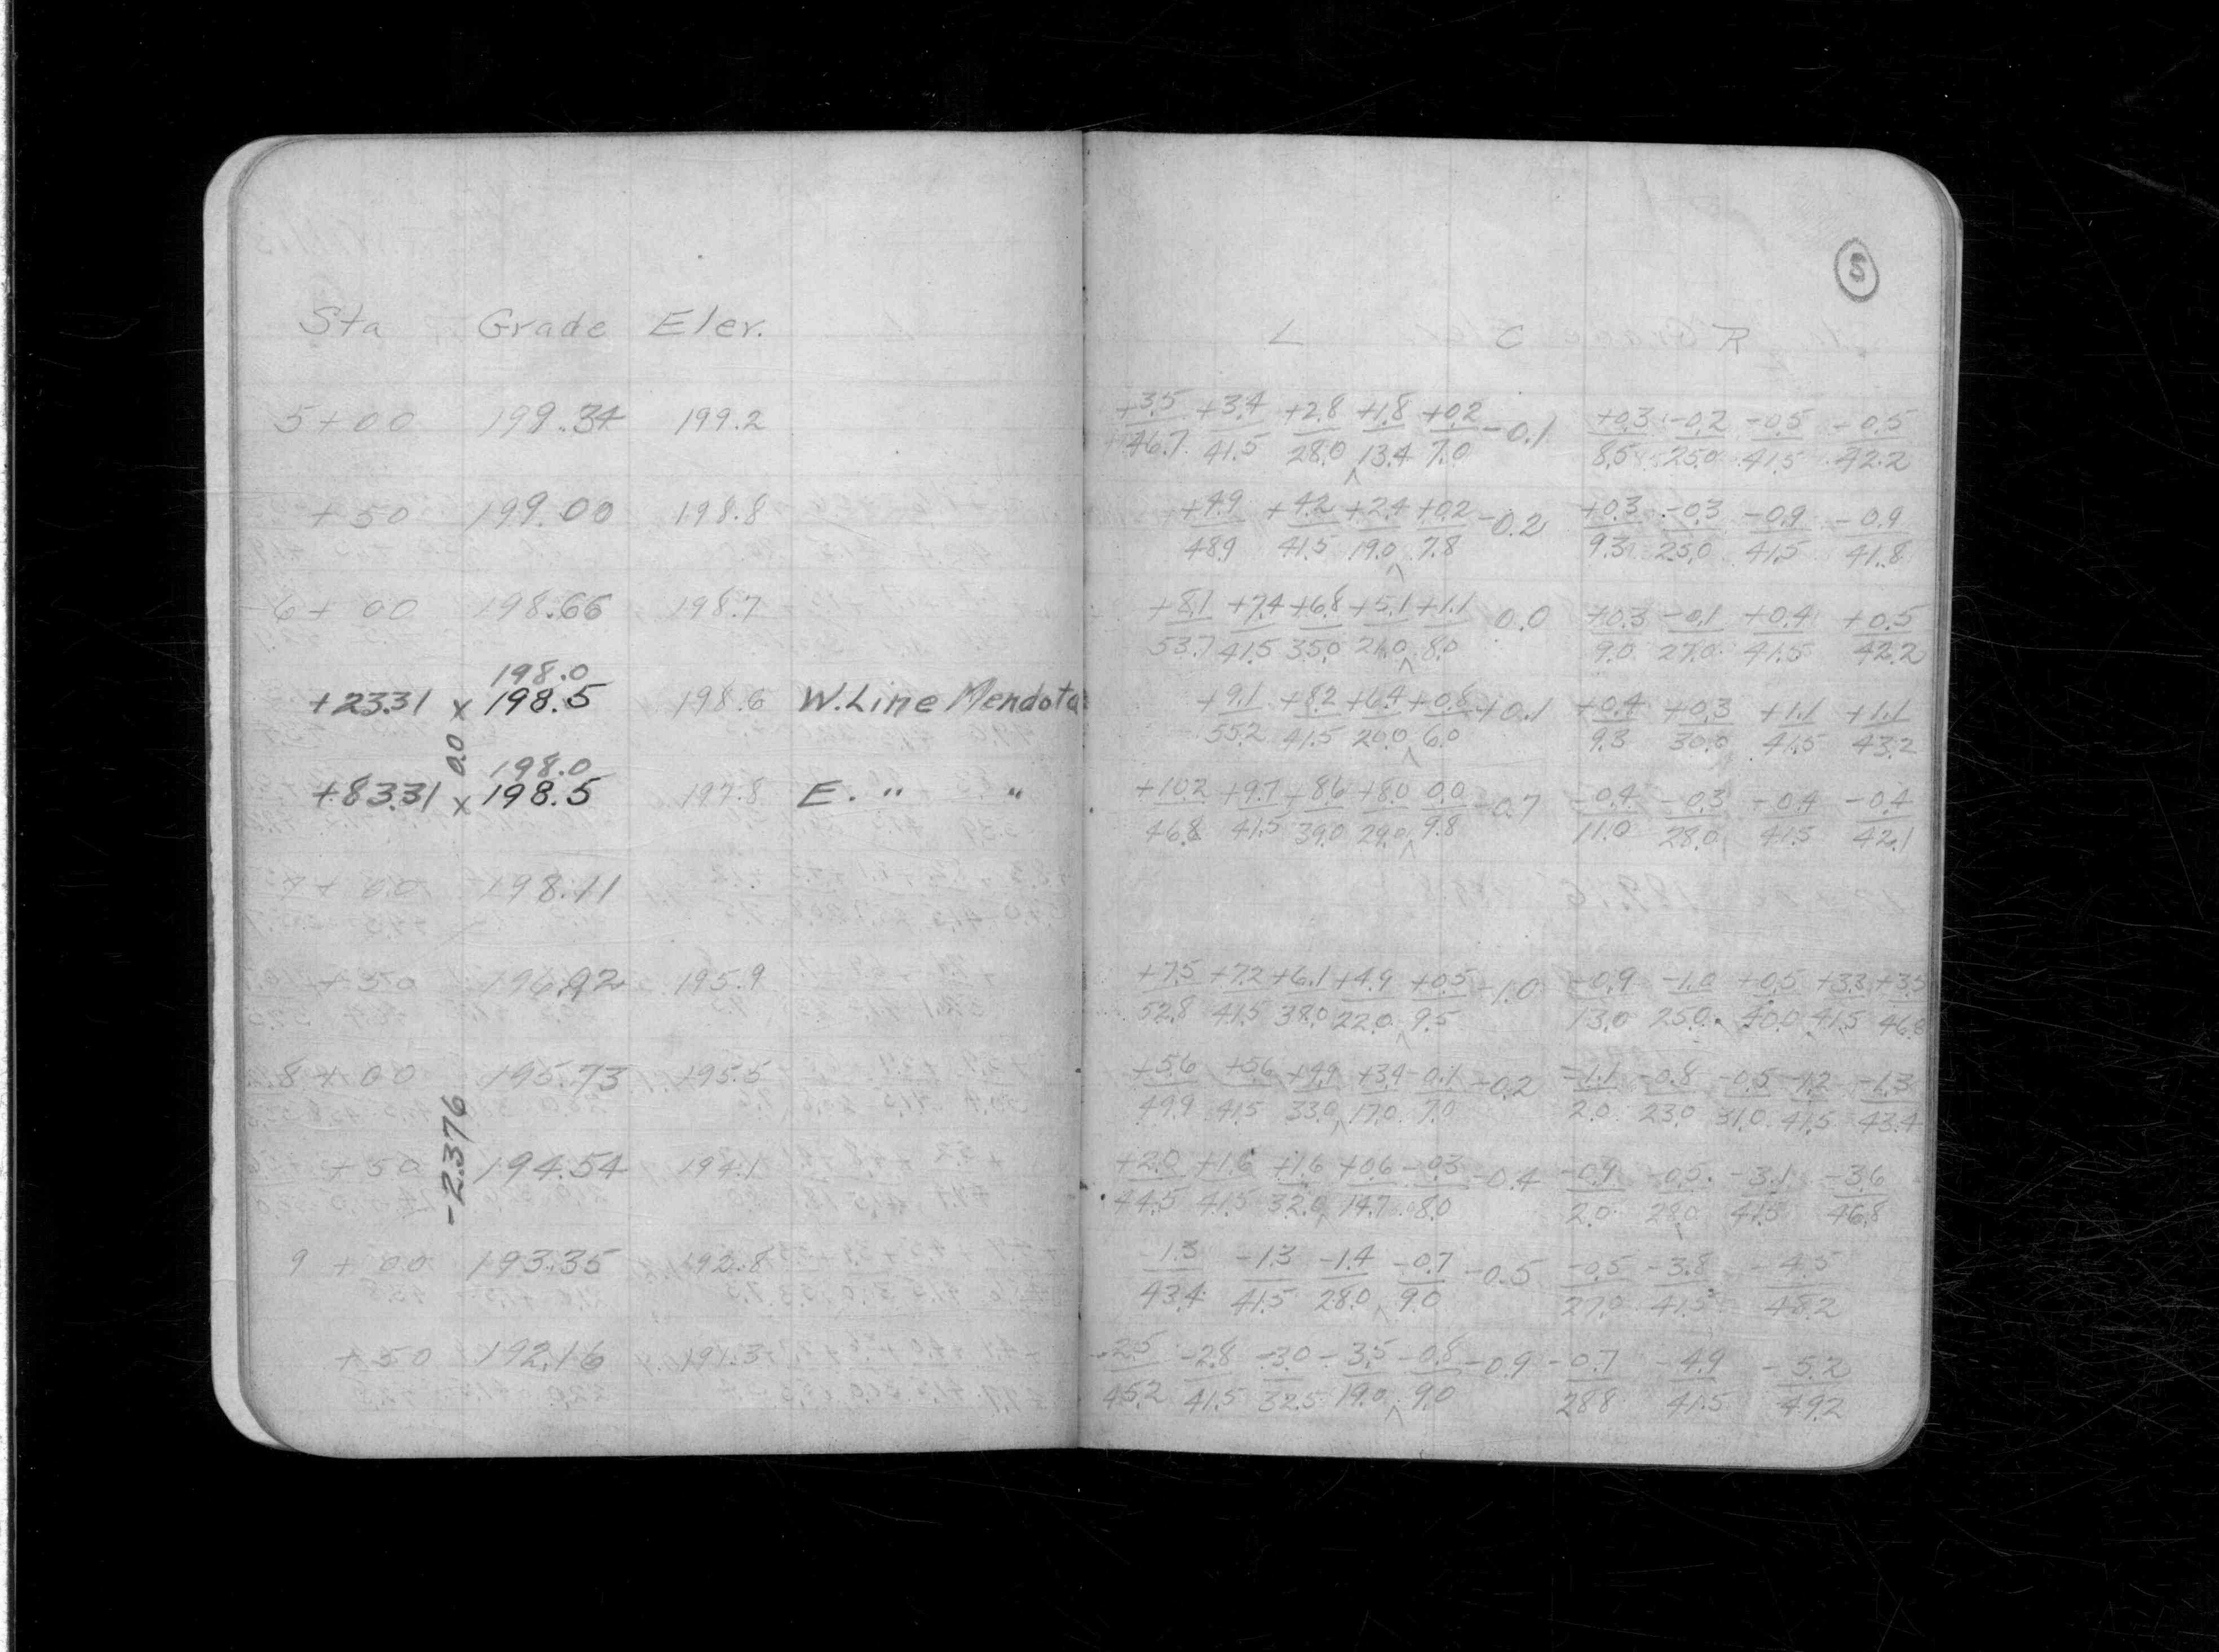 5
Sta Grade Elev. L C R
5+00 199.34 199.2 +3.5 +3.4 +2.8 +1.8 +0.2 -0.1 +0.3 -0.2 -0.5 -0.5
46.7 41.5 28.0 13.4 7.0 8.5 25.0 41.5 42.2
+50 199.00 198.8 +4.9 +4.2 +2.4 +0.2 -0.2 +0.3 -0.3 -0.9 -0.9
48.9 41.5 19.0 7.8 9.3 25.0 41.5 41.8
6+00 198.66 198.7 +8.1 +7.4 +6.8 +5.1 +1.1 0.0 +0.3 -0.1 +0.4 +0.5
53.7 41.5 35.0 21.0 8.0 9.0 27.0 41.5 42.2
198.0
+23.31 x 198.5 198.6 W. Line Mendota +9.1 +8.2 +6.4 +0.8 +0.1 +0.4 +0.3 +1.1 +1.1
55.2 41.5 26.0 6.0 9.3 30.0 41.5 43.2
0.0
198.0
+83.31 x 198.5 197.8 E. " " +10.2 +9.7 +8.6 +8.0 0.0 -0.7 -0.4 -0.3 -0.4 -0.4
46.8 41.5 39.0 29.0 9.8 11.0 28.0 41.5 42.1
7+00 198.11
+50 196.92 195.9 +7.5 +7.2 +6.1 +4.9 +0.5 -1.0 -0.9 -1.0 +0.5 +3.3 +3.5
52.8 41.5 38.0 22.0 9.5 13.0 25.0 40.0 41.5 46.8
8+00 195.73 195.5 +5.6 +5.6 +4.9 +3.4 -0.1 -0.2 -1.1 -0.8 -0.5 -1.2 -1.3
49.9 41.5 33.0 17.0 7.0 2.0 23.0 31.0 41.5 43.4
-2.376
+50 194.54 194.1 +2.0 +1.6 +1.6 +0.6 -0.3 -0.4 -0.9 -0.5 -3.1 -3.6
44.5 41.5 32.0 14.7 8.0 2.0 28.0 41.5 46.8
9+00 193.35 192.8 -1.3 -1.3 -1.4 -0.7 -0.5 -0.5 -3.8 -4.5
43.4 41.5 28.0 9.0 27.0 41.5 48.2
+50 192.16 191.3 -2.5 -2.8 -3.0 -3.5 -0.8 -0.9 -0.7 -4.9 -5.2
45.2 41.5 32.5 19.0 9.0 28.8 41.5 49.2